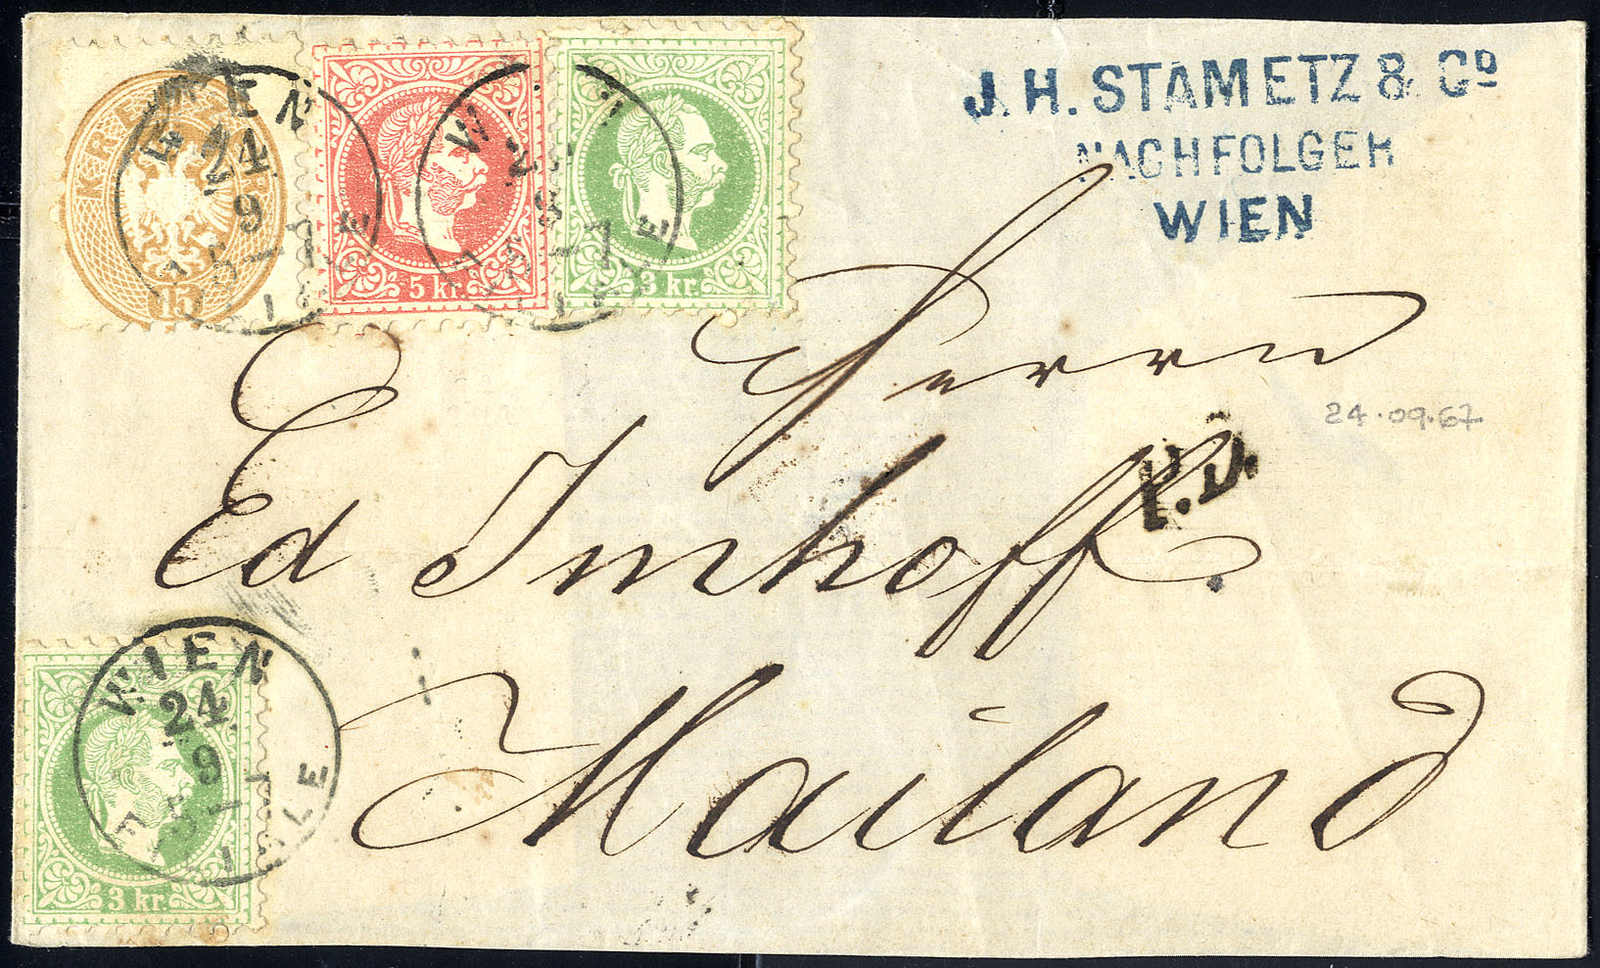 J. H. STAMETZ & Cº
NACHFOLGER
WIEN
KR
15
5 kr.
3 kr.
WIEN
24
9
5-7
E
WIEN
E
Herrn
24.09.67
P.D.
Ed Imhoff
Mailand
WIEN
24
9
5-
FILIALE
3 kr.